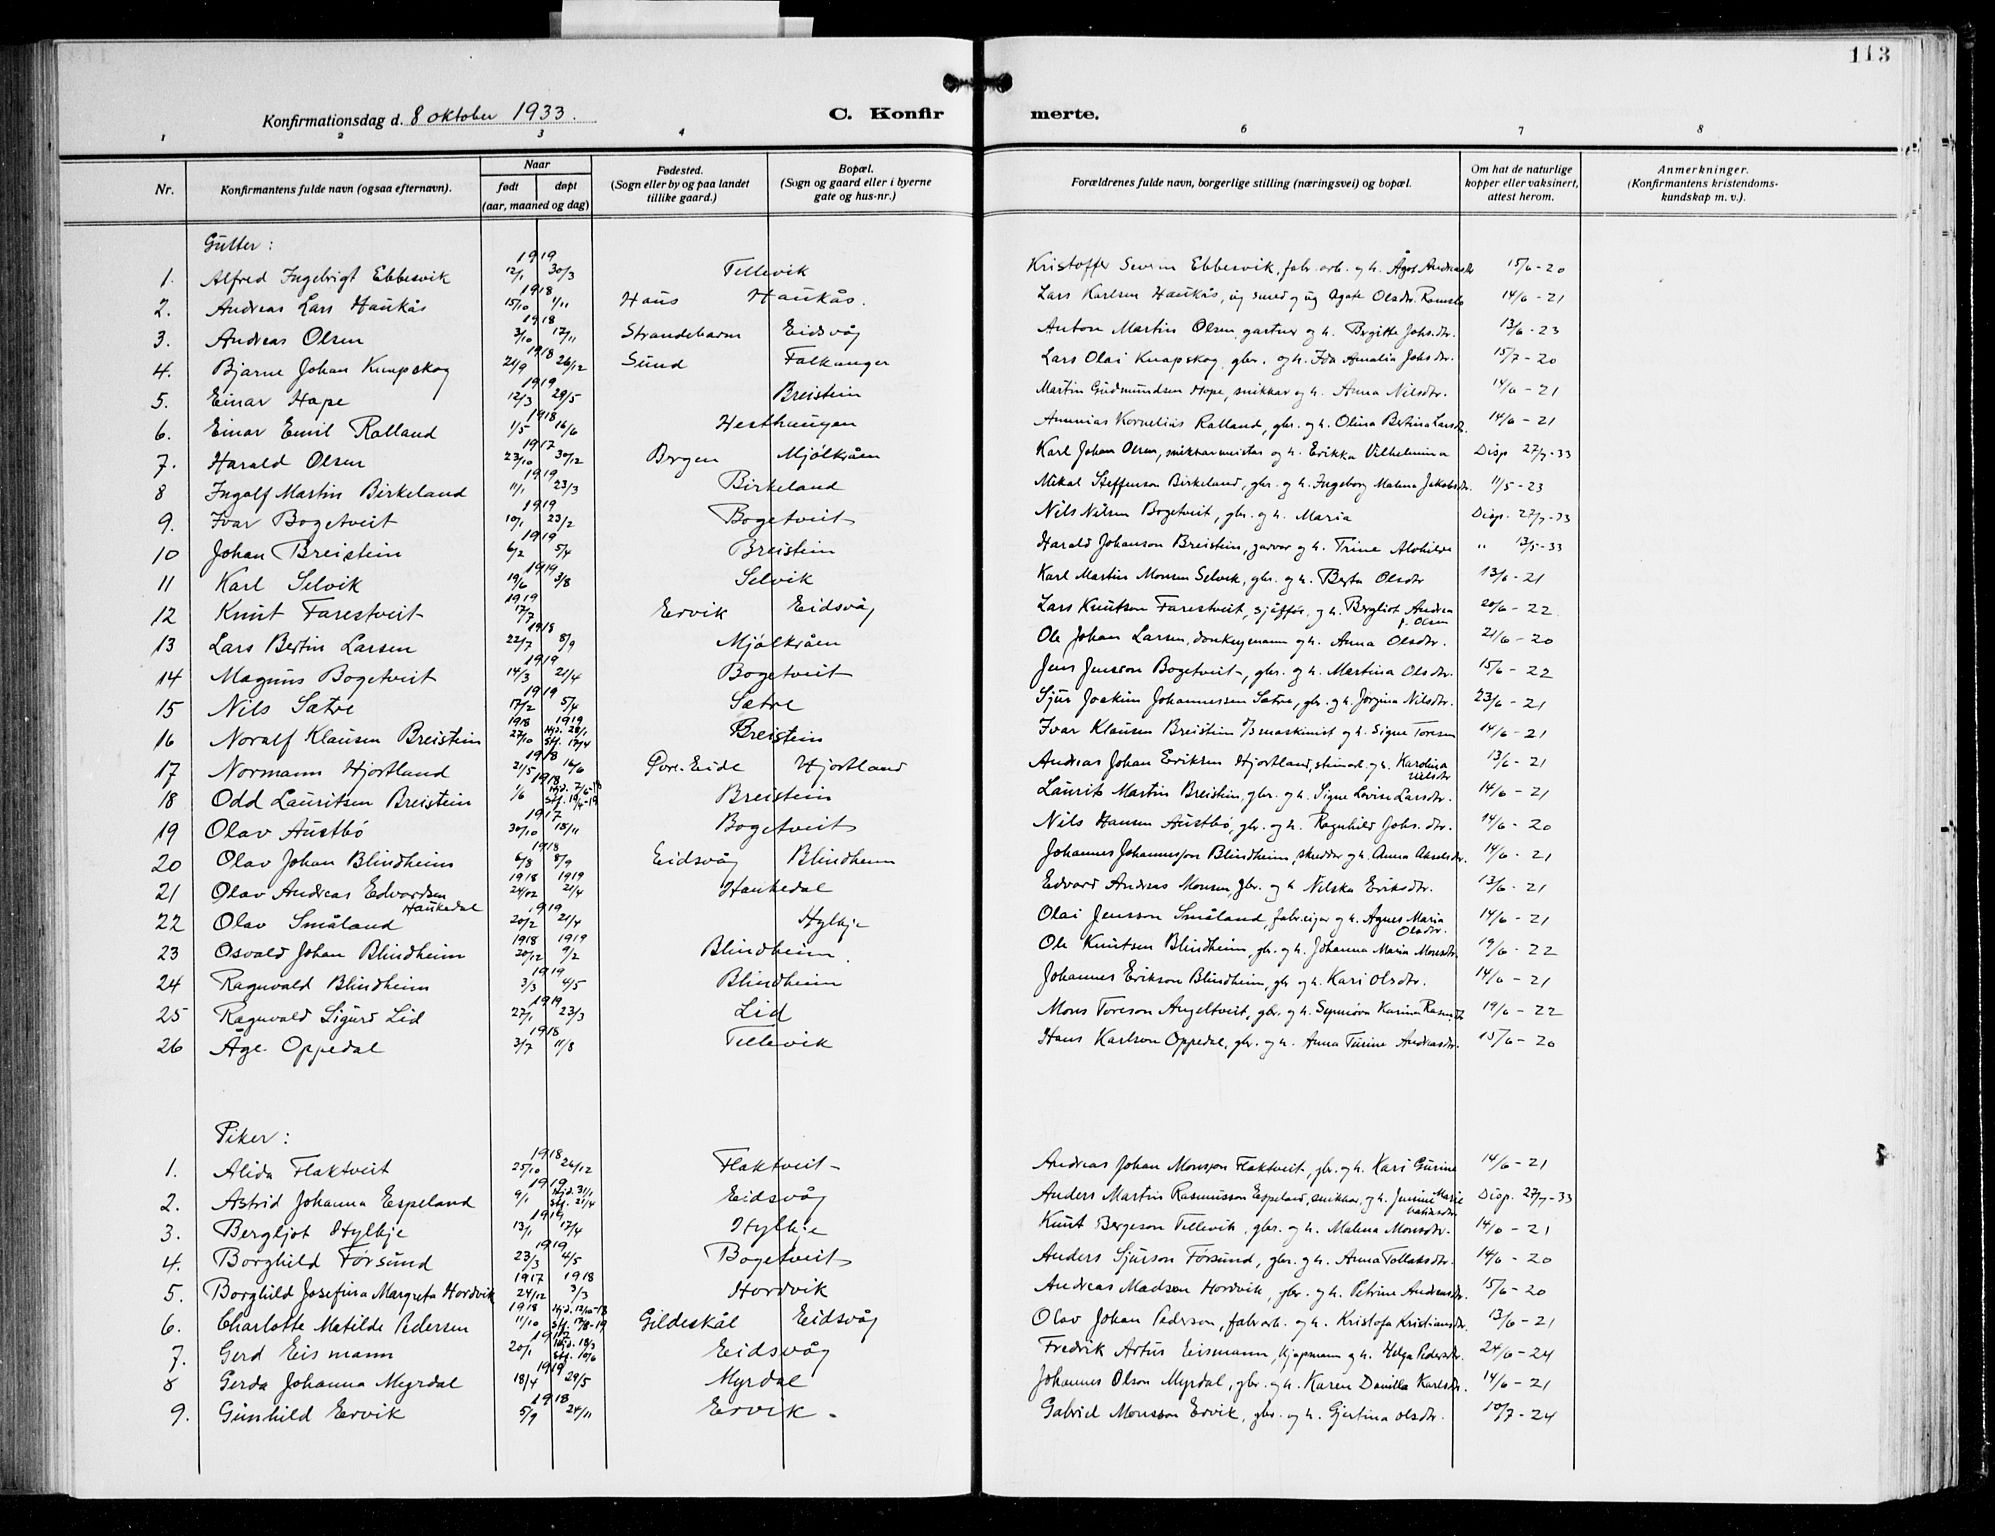 113
Konfirmationsdag d. 8 oktober 1933.
C. Konfirmerte.
1 2 3 4 6 7 8
Nr.
Konfirmantens fulde navn (ogsaa efternavn).
Naar
født døpt
(aar, maaned og dag)
Fødested.
(Sogn eller by og paa landet
tillike gaard.)
Bopæl.
(Sogn og gaard eller i byerne
gate og hus-nr.)
Forældrenes fulde navn, borgerlige stilling (næringsvei) og bopæl.
Om hat de naturlige
kopper eller vaksinert,
attest herom.
Anmerkninger.
(Konfirmantens kristendoms-
kundskap m. v.).
Gutter:
1. Alfred Ingebrigt Ebbesvik 1919 12/1 30/3 Tellevik Kristoffer Severin Ebbesvik, fabr. arb. og h. Ågot Andreasdr 15/6-20
2. Andreas Lars Haukås 1918 15/10 1/11 Haus Haukås. Lars Karlsen Haukås, ug smed og ug Agate Olsdtr. Romslo 14/6-21
3. Andreas Olsen 1918 3/10 17/11 Strandebarm Eidsvåg Anton Martin Olsen, gartner og h. Birgitte Johs.dtr. 13/6-23
4. Bjarne Johan Knapskog 1918 21/9 26/12 Sund Falkanger Lars Olai Knapskog, gbr. og h. Ida Amalia Johsdtr. 15/7-20
5. Einar Hope 1919 12/3 29/5 Breistein Martin Gudmundsen Hope, snikkar og h. Anna Nilsdtr. 14/6-21
6. Einar Emil Rolland 1918 1/5 16/6 Hesthaugen Ananias Kornelius Rolland, gbr. og h. Olina Bertina Larsdtr. 14/6-21
7. Harald Olsen 1917 23/10 30/12 Bergen Mjølkråen Karl Johan Olsen, snikkarmeistar og h. Erikka Vilhelmina Disp 27/7-33
8 Ingolf Martin Birkeland 1919 11/1 23/3 Birkeland Mikal Steffenson Birkeland, gbr. og h. Ingeborg Malena Jakobsdtr. 11/5-23
9. Ivar Bogetveit 1919 10/1 23/2 Bogetveit Nils Nilsen Bogetveit, gbr. og h. Maria Disp. 27/7-33
10 Johan Breistein 1919 6/2 5/4 Breistein Harald Johanson Breistein, garvar og h. Trine Alvhilde " 13/5-33
11 Karl Selvik 1919 19/6 3/8 Selvik Karl Martin Monsen Selvik, gbr. og h. Berta Olsdtr 13/6-21
12 Knut Farestveit 1919 17/7 Ervik Eidsvåg Lars Knutson Farestveit, sjåfør, og h. Bergliot Andrea f. Olsen 20/6-22
13 Lars Bertin Larsen 1918 22/7 8/9 Mjølkråen Ole Johan Larsen, donkeymann og h. Anna Olsdtr. 21/6-20
14 Magnus Bogetveit 1919 14/3 21/4 Bogetveit Jens Jensson Bogetveit, gbr. og h. Martina Olsdtr. 15/6-22
15 Nils Sætre 1919 17/2 5/4 Sætre Sjur Joakim Johannessen Sætre, gbr. og h. Jorgina Nilsdtr. 23/6-21
16 Noralf Klausen Breistein 1918 27/10 1919 Hjd. 28/1 Stf. 17/4 Breistein Ivar Klausen Breistein maskinist og h. Signe Toresen 14/6-21
17 Normann Hjortland 1918 21/5 16/6 Øvre-Eide Hjortland Andreas Johan Eriksen Hjortland, steinarb. og h. Karolina Nilsdtr 13/6-21
18 Odd Lauritsen Breistein 1918 1/6 Hjd. 7/6-18 Stf. 19/4-19 Breistein Laurits Martin Breistein, gbr. og h. Signe Lovise Larsdtr. 14/6-21
19 Olav Austbø 1917 30/10 18/11 Bogetveit Nils Hansen Austbø, gbr. og h. Ragnhild Johs.dtr. 14/6-20
20 Olav Johan Blindheim 1918 6/8 8/9 Eidsvåg Blindheim Johannes Johannesson Blindheim, skredder og h. Anna Akselsdtr. 14/6-21
21 Olav Andreas Edvardsen Haukedal 1918 24/12 1919 21/4 Haukedal Edvard Andreas Monsen, gbr. og h. Nilska Eriksdtr. 13/6-21
22 Olav Småland 1919 20/2 21/4 Hylkje Olai Jensson Småland, fabr.eigar og h. Agnes Maria Olsdtr. 14/6-21
23 Osvald Johan Blindheim 1918 20/12 1919 9/2 Blindheim. Ole Knutsen Blindheim, gbr. og h. Johanna Maria Monsdtr 19/6-22
24 Ragnvald Blindheim 1919 3/3 4/5 Blindheim Johannes Erikson Blindheim, gbr og h. Kari Olsdtr. 14/6-21
25 Ragnvald Sigurd Lid 1919 27/1 23/3 Lid Mons Toreson Angeltveit, gbr. og h. Synnøva Karina Rasm.dtr 19/6-22
26 Åge Oppedal 1918 3/7 11/8 Tellevik Hans Karlson Oppedal, gbr. og h. Anna Turine Andreasdtr. 15/6-20
Piker:
1. Alida Flaktveit 1918 25/10 26/12 Flaktveit Andreas Johan Monsson Flaktveit, gbr. og h. Kari Gurine 14/6-21
2. Astrid Johanna Espeland 1919 9/1 Hjd. 31/1 Stf. 21/4 Eidsvåg Anders Martin Rasmusson Espeland, snikkar, og h. Jensine Marie Disp. 27/7-33
3. Bergljot Hylkje 1919 13/1 17/4 Hylkje Knut Bergeson Tellevik, gbr. og h. Malena Monsdtr. 14/6-21
4. Borghild Førsund 1919 23/3 4/5 Bogetveit Anders Sjurson Førsund, gbr. og h. Anna Tollaksdtr. 14/6-20
5. Borghild Josefina Margreta Hordvik 1917 24/12 1918 3/3 Hordvik Andreas Madsen Hordvik, gbr. og h. Petrine Andreasdtr. 15/6-20
6. Charlotte Matilde Pedersen 1918 11/10 Hjd. 12/10-18 Stf. 17/8-19 Gildeskål Eidsvåg Olav Johan Pederson, fabrarb. og h. Kristofa Kristiansdtr. 13/6-21
7. Gerd Eismann 20/1 Hjd. 18/3 Stf. 10/6 Eidsvåg Fredrik Artur Eismann, kjøpmann og h. Helga Pedersdtr. 24/6-24
8 Gerda Johanna Myrdal 1919 18/4 29/5 Myrdal Johannes Olson Myrdal, gbr. og h. Karen Danilla Karlsdtr. 14/6-21
9. Gunhild Ervik 1918 5/9 24/11 Ervik. Gabriel Monsson Ervik, gbr. og h. Gjertina Olsdtr. 10/7-24